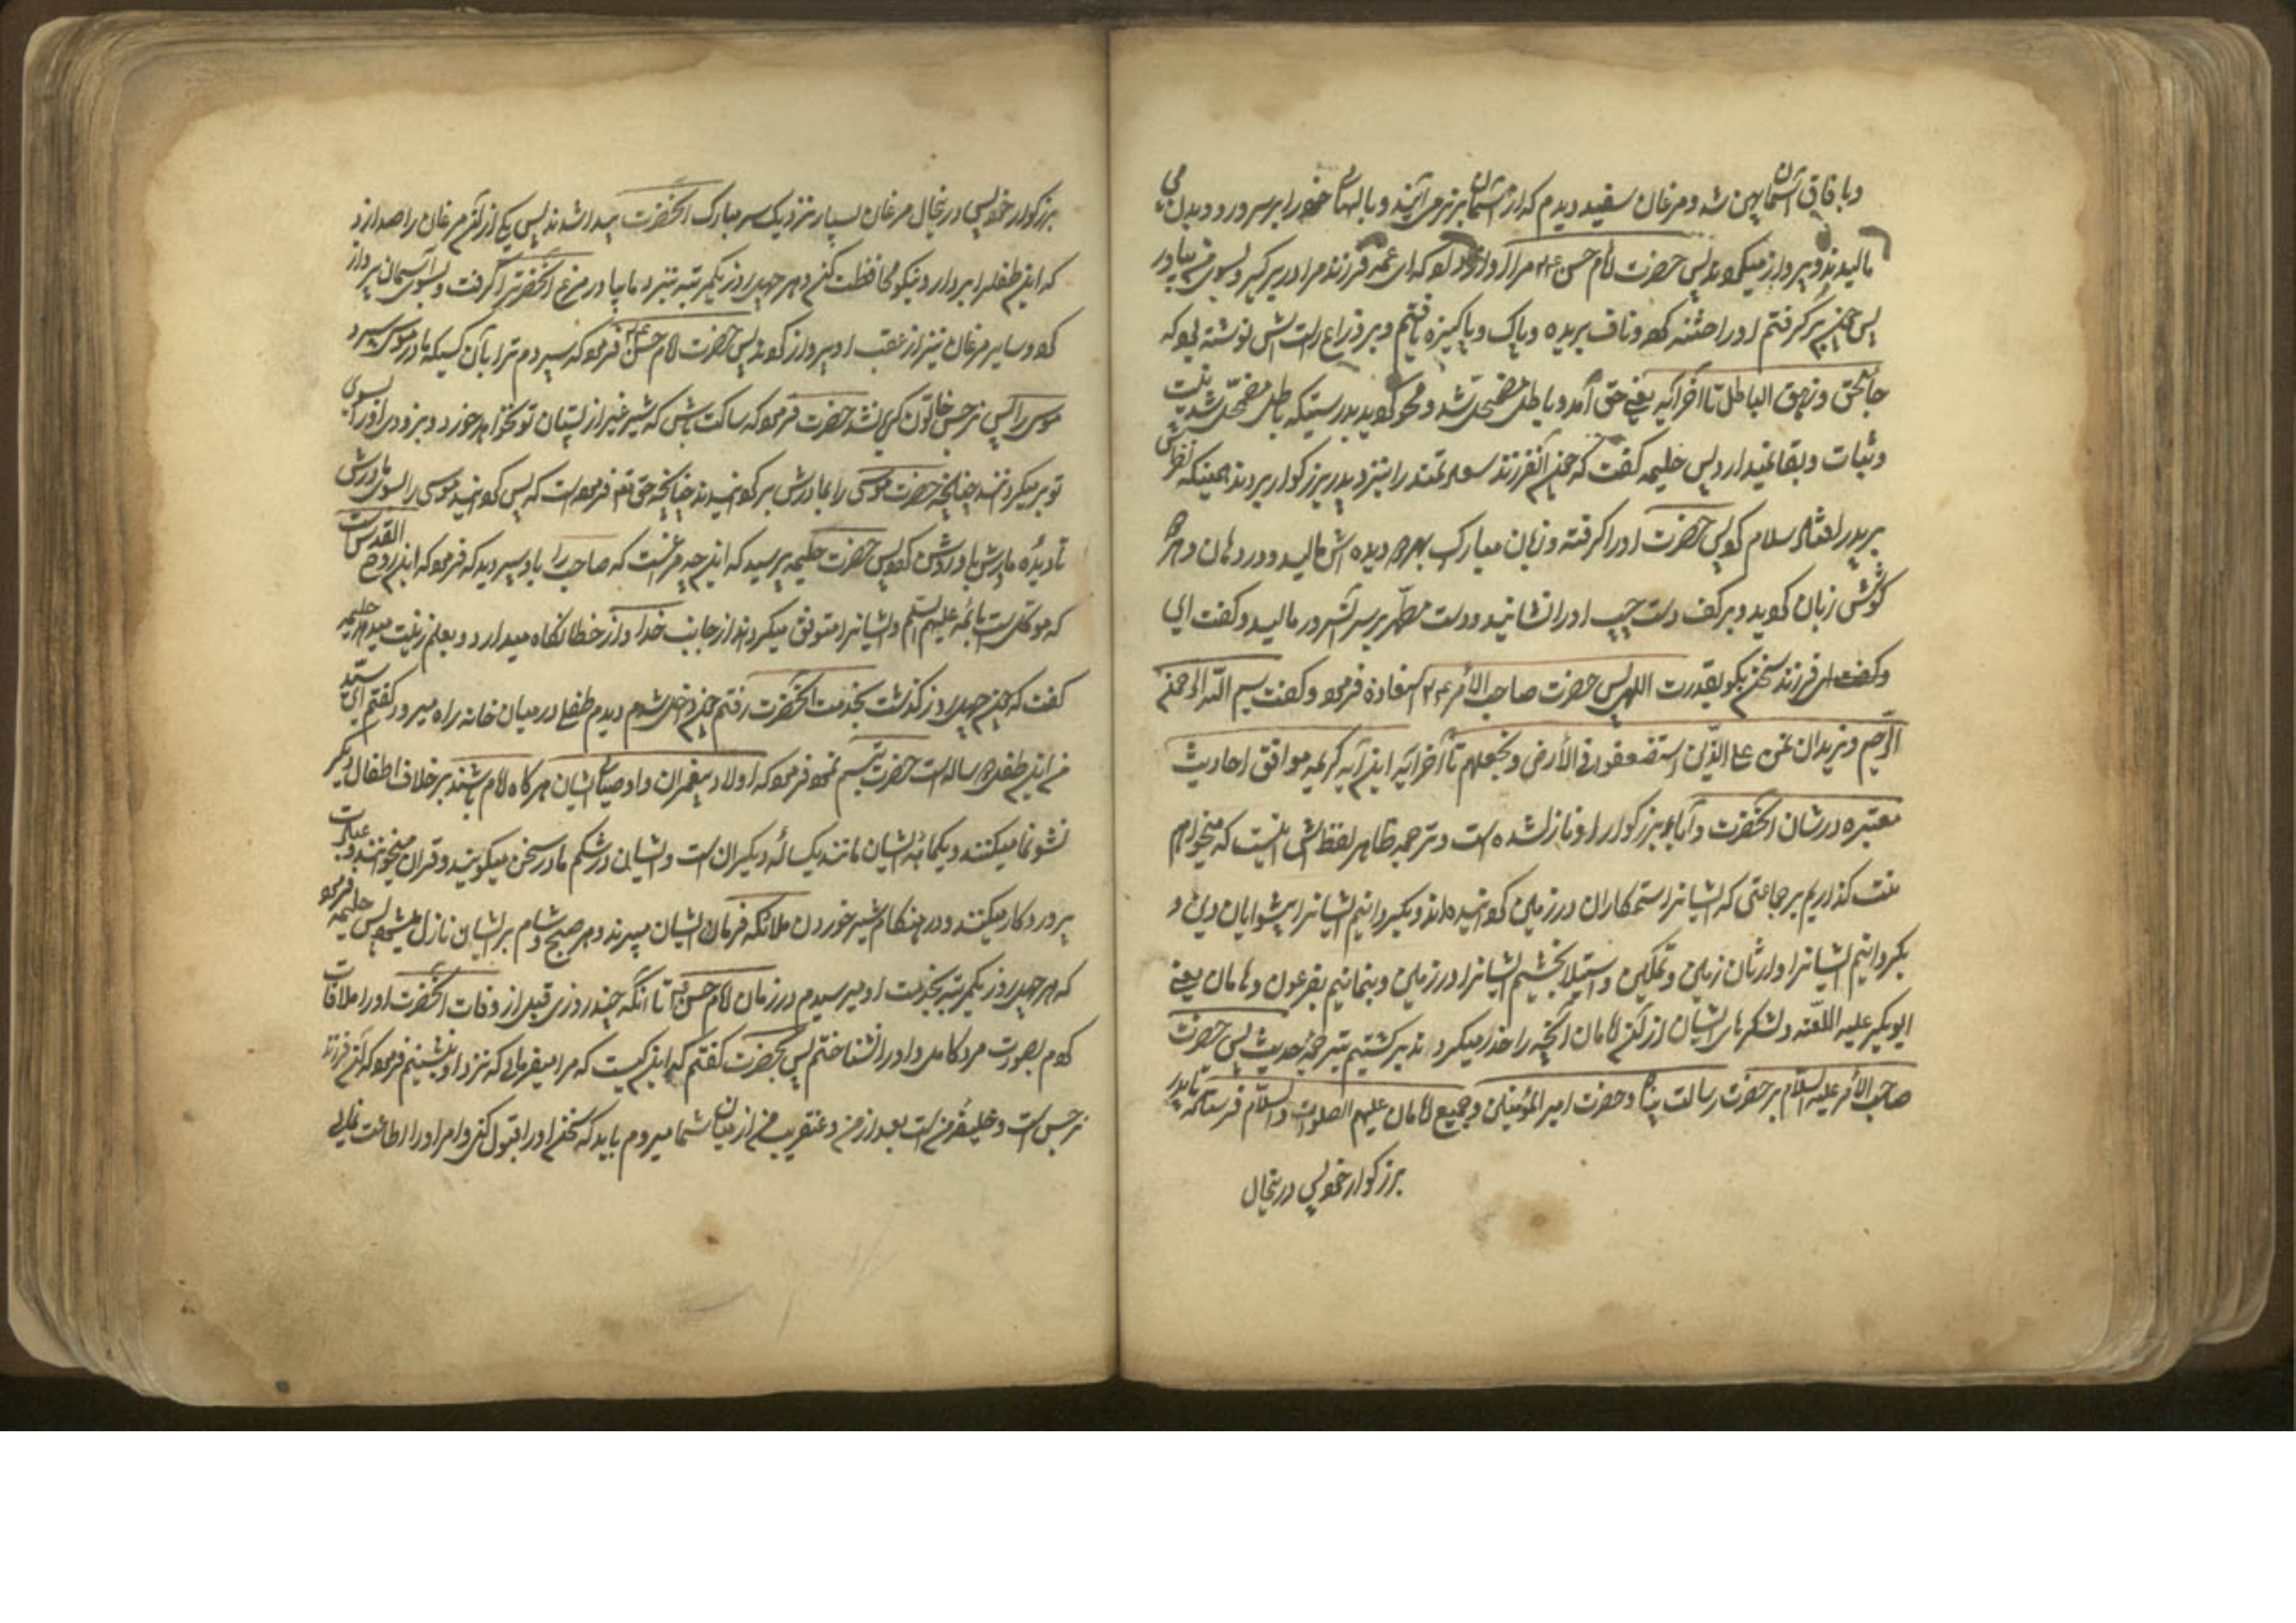 وبافاق آسمان پهن شد و مرغان سفید دیدم که از آسمان بزیر می آیند و بالهای خود را بر سر و رو و بدن می
مالیدند و پرواز میکردند پس حضرت امام حسن مرا آواز که ای عمه فرزند مرا در بر گیر و بسوی من بیاور
پس چون بر گرفتم او را ختنه کرده و ناف بریده و پاک و پاکیزه یافتم و بر ذراع راستش نوشته بود که
جا الحق و زهق الباطل تا آخر آیه یعنی حق آمد و باطل مضمحل شد و محو گردید بدرستیکه باطل مضمحل شدنیست
و ثبات و بقا نمیدارد پس حلیمه گفت که چون آنفرزند سعادتمند را بنزد پدر بزرگوار بردند همینکه نظرش
بر پدر افتاد سلام کرد پس حضرت او را گرفته و زبان مبارک بهر دو دیده اش مالید و در دهان و هر دو
گوشش زبان گردید و بر کف دست چپ او را نشانید و دست مطهر بر سر آنسرور مالید و گفت ای
و گفت ای فرزند سخن بگو بقدرت اللهی پس حضرت صاحب الأمر استعاذه فرمود و گفت بسم الله الرحمن
الرحیم و نرید ان نمن علی الذین استضعفوا فی الأرض و نجعلهم تا آخر آیه این آیه کریمه موافق احادیث
معتبره در شان آنحضرت و آباء بزرگوار او نازل شده است و ترجمه ظاهر لفظش اینست که میخواهم
منت گذاریم بر جماعتی که ایشانرا ستمکاران در زمین گردانیده اند و بگردانیم ایشانرا پیشوایان دین و
بگردانیم ایشانرا وارثان زمین و تمکین و استیلا بخشیم ایشانرا در زمین و بنمائیم بفرعون و هامان یعنی
ابوبکر علیه اللعنه و لشکرهای ایشان از آن امامان آنچه را حذر میکردند برگشتیم بترجمه حدیث پس حضرت
صاحب الأمر علیه السلام بر حضرت رسالت پناه و حضرت امیر المؤمنین و جمیع امامان علیهم الصلوات و السلام فرستاد تا پدر
بزرگوار خود پس در ینحال
بزرگوار خود پس در ینحال مرغان بسیار نزدیک سر مبارک آنحضرت پیدا شدند پس یکی از آن مرغان را صدا زد
که این طفل را بردار و نیکو محافظت کن و هر چهل روز یکمرتبه بنزد ما بیاور مرغ آنحضرت را گرفت و بسوی آسمان پرواز
کرد و سایر مرغان نیز از عقب او پرواز کردند پس حضرت امام حسن فرمود که سپردم ترا بآن کسیکه مادر موسی سپرد
موسی را پس نرجس خاتون گریان شد حضرت فرمود که ساکت باش که شیر غیر از پستان تو نخواهد خورد و بزودی او را بسوی
تو بر میگردانند چنانچه حضرت موسی را بمادرش برگردانیدند چنانچه حق تعالی فرموده است که پس گردانیدیم موسی را بسوی مادرش
تا دیده مادرش باو روشن گردد پس حضرت حلیمه پرسید که این چه مرغست که صاحب را باو سپردید که فرمود که این روح القدس است
که موکل است بائمه علیهم السلم و ایشانرا موفق میگرداند از جانب خدا و از خطا نگاه میدارد و بعلم زینت میدهد حلیمه
گفت که چون چهل روز گذشت بخدمت آنحضرت رفتم چون داخل شدم دیدم طفلی در میان خانه راه میرود گفتم ای سید
من این طفل دو ساله است حضرت تبسم نمود فرمود که اولاد پیغمبران و اوصیای ایشان هر گاه امام باشند بر خلاف اطفال دیگر
نشو نما میکنند و یکماهه ایشان مانند یکساله دیگران است و ایشان در شکم مادر سخن میگویند و قران میخوانند و عبادت
پروردکار میکنند و در هنکام شیر خوردن ملائکه فرمان ایشان میبرند و هر صبح و شام بر ایشان نازل میشوند پس حلیمه فرمود
که هر چهل روز یکمرتبه بخدمت او میرسیدم در زمان امام حسن تا آنکه چند روزی قبل از وفات آنحضرت او را ملاقات
کردم بصورت مرد کامل و او را نشناختم پس بحضرت گفتم که این کیست که مرا میفرمائی که نزد او بنشینم فرمود که این فرزند
نرجس است و خلیفه من است بعد از من و عنقریب من از میان شما میروم باید که سخن او را قبول کنی و امر او را اطاعت نمایی